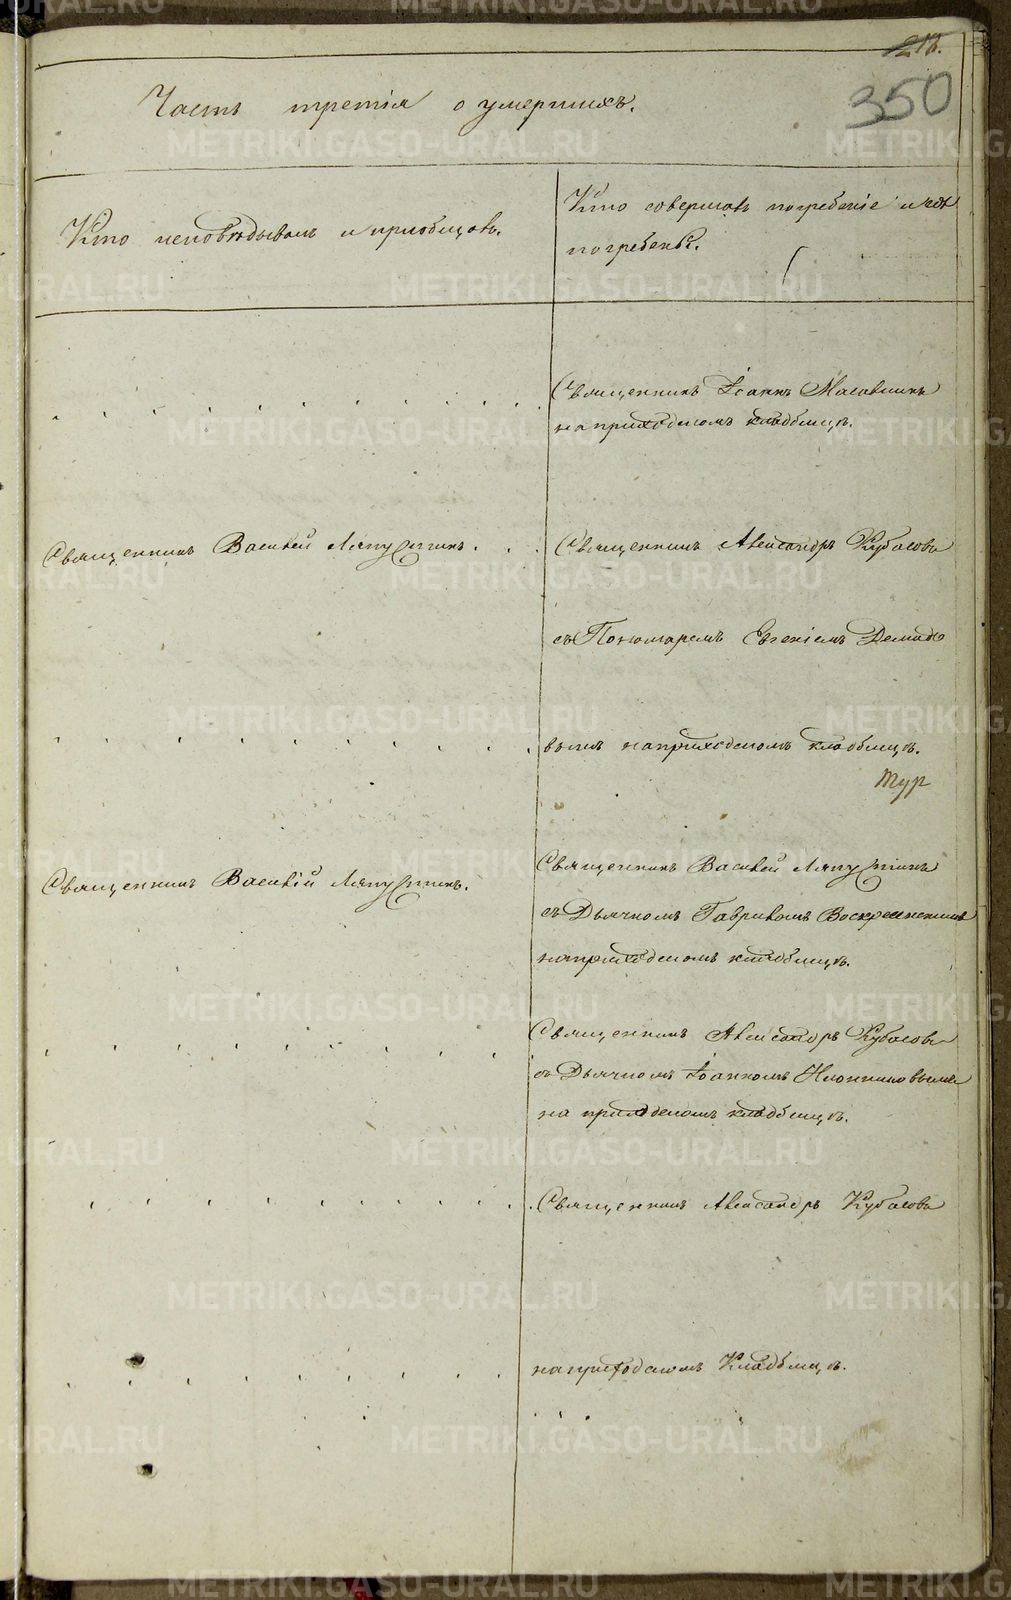 350
Часть третія о умершихъ.
Кто исповѣдывалъ и пріобщалъ.
Кто совершалъ погребеніе и гдѣ
погребены.
Священникъ Іоаннъ
на приходскомъ кладбищѣ.
Священникъ Василій Ляпустинъ.
Священникъ Александръ Кубасовъ
съ Пономаремъ Евгеніемъ Демидо
вымъ на приходскомъ кладбищѣ.
Тур
Священникъ Василій Ляпустинъ.
Священникъ Василій Ляпустинъ
съ Дьячкомъ Гавріиломъ Воскресенскимъ
на приходскомъ кладбищѣ.
Священникъ Александръ Кубасовъ
съ Дьячкомъ Іоанномъ
на приходскомъ кладбищѣ.
Священникъ Александръ Кубасовъ
на приходскомъ Кладбищѣ.
METRIKI.GASO-URAL.RU